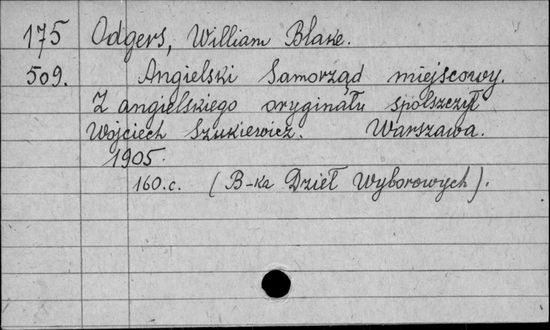 175 Odgers, William Blake.
509. Angielski Samorząd miejscowy.
Z angielskiego oryginału spolszczył
Wojciech Szukiewicz. Warszawa.
1905.
160.c. (B-ka Dzieł Wyborowych).